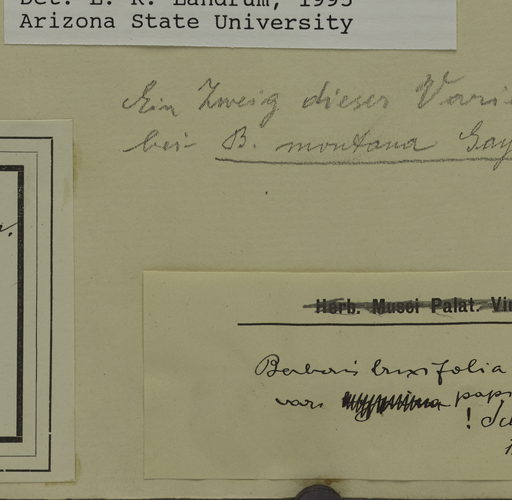 Det. L. R. Landrum, 1995
Arizona State University
Ein Zweig dieser Vari
bei B. montana Gay
Herb. Musei Palat. Vin
Berberis buxifolia
var.
!